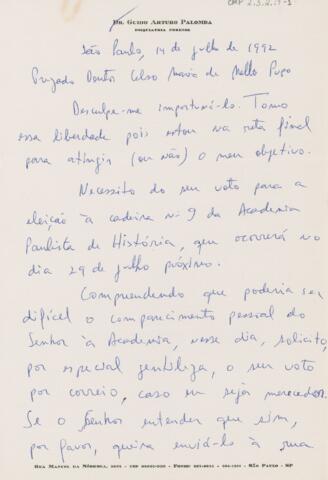 CMP 2.3.2.19-1
Dr. Guido Arturo Palomba
PSIQUIATRIA FORENSE
São Paulo, 14 de julho de 1992
Prezado Doutor Celso Maria de Mello Pupo
Desculpe-me importuná-lo. Tomo
essa liberdade pois estou na reta final
para atingir (ou não) o meu objetivo.
Necessito do seu voto para a
eleição à cadeira nº 9 da Academia
Paulista de História, que ocorrerá no
dia 29 de julho próximo.
Compreendendo que poderia ser
difícil o comparecimento pessoal do
Senhor à Academia, nesse dia, solicito,
por especial gentileza, o seu voto
por correio, caso eu seja merecedor.
Se o Senhor entender que sim,
por favor, queira enviá-lo à rua
Rua Manuel da Nóbrega, - CEP - Fones: - São Paulo - SP